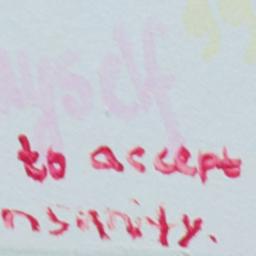 myself
to accept
nsanity.